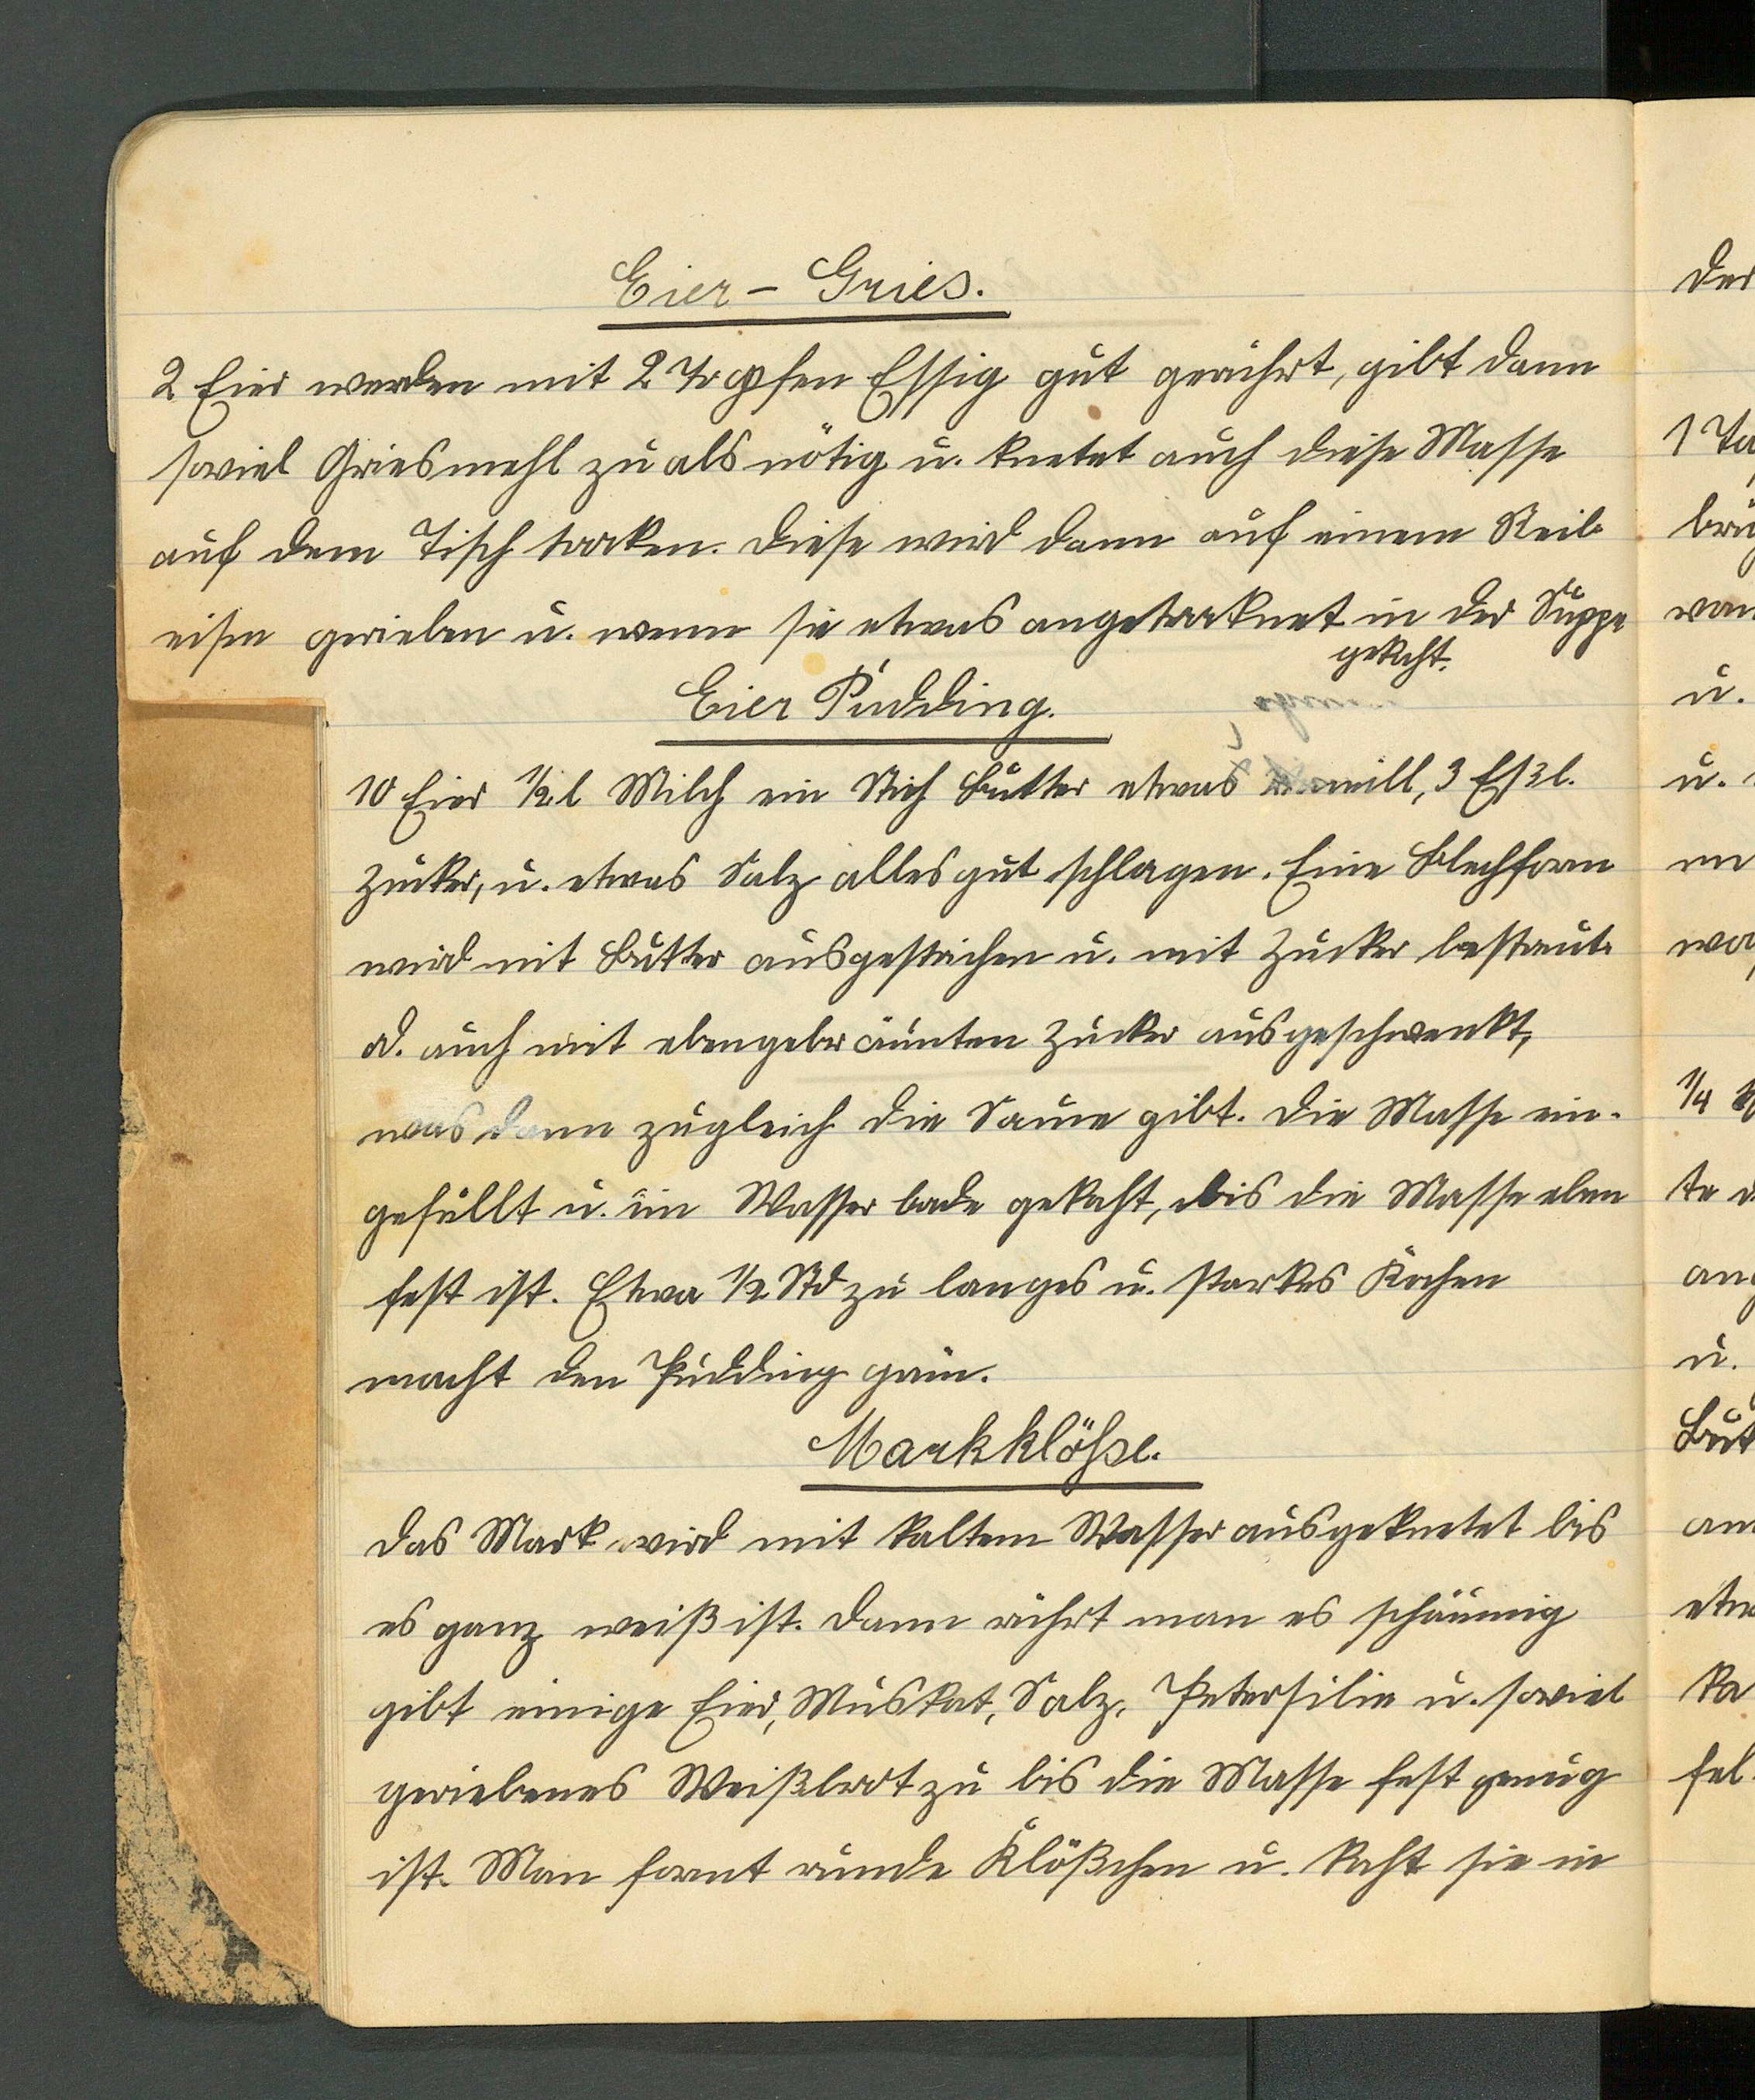 Eier-Gries.
2 Eier werden mit 2 Tropfen Essig gut gerührt, gibt dann
soviel Griesmehl zu als nötig u. knetet auch diese Masse
auf dem Tisch trocken. Diese wird dann auf einem Reib-
eisen gerieben u. wenn sie etwas angetrocknet in der Suppe
gekocht.
Eier Pudding.
10 Eier ½ l Milch ein Stich Butter etwas 3 Eßl.
Zucker, u. etwas Salz alles gut schlagen. Eine Blechform
wird mit Butter ausgestrichen u. mit Zucker bestreut
od. auch mit ebengebräunten Zucker ausgeschwenkt,
was dann zugleich die Sauce gibt. Die Masse ein-
gefüllt u. im Wasser bade gekocht, bis die Masse eben
fest ist. Etwa ½ Std zu langes u. starkes Kochen
macht den Pudding grün.
Markklöße.
Das Mark wird mit kaltem Wasser ausgeknetet bis
es ganz weiß ist. Dann rührt man es schäumig
gibt einige Eier, Muskat, Salz, Petersilie u. soviel
geriebenes Weißbrot zu bis die Masse fest genug
ist. Man formt runde Klößchen u. kocht sie in